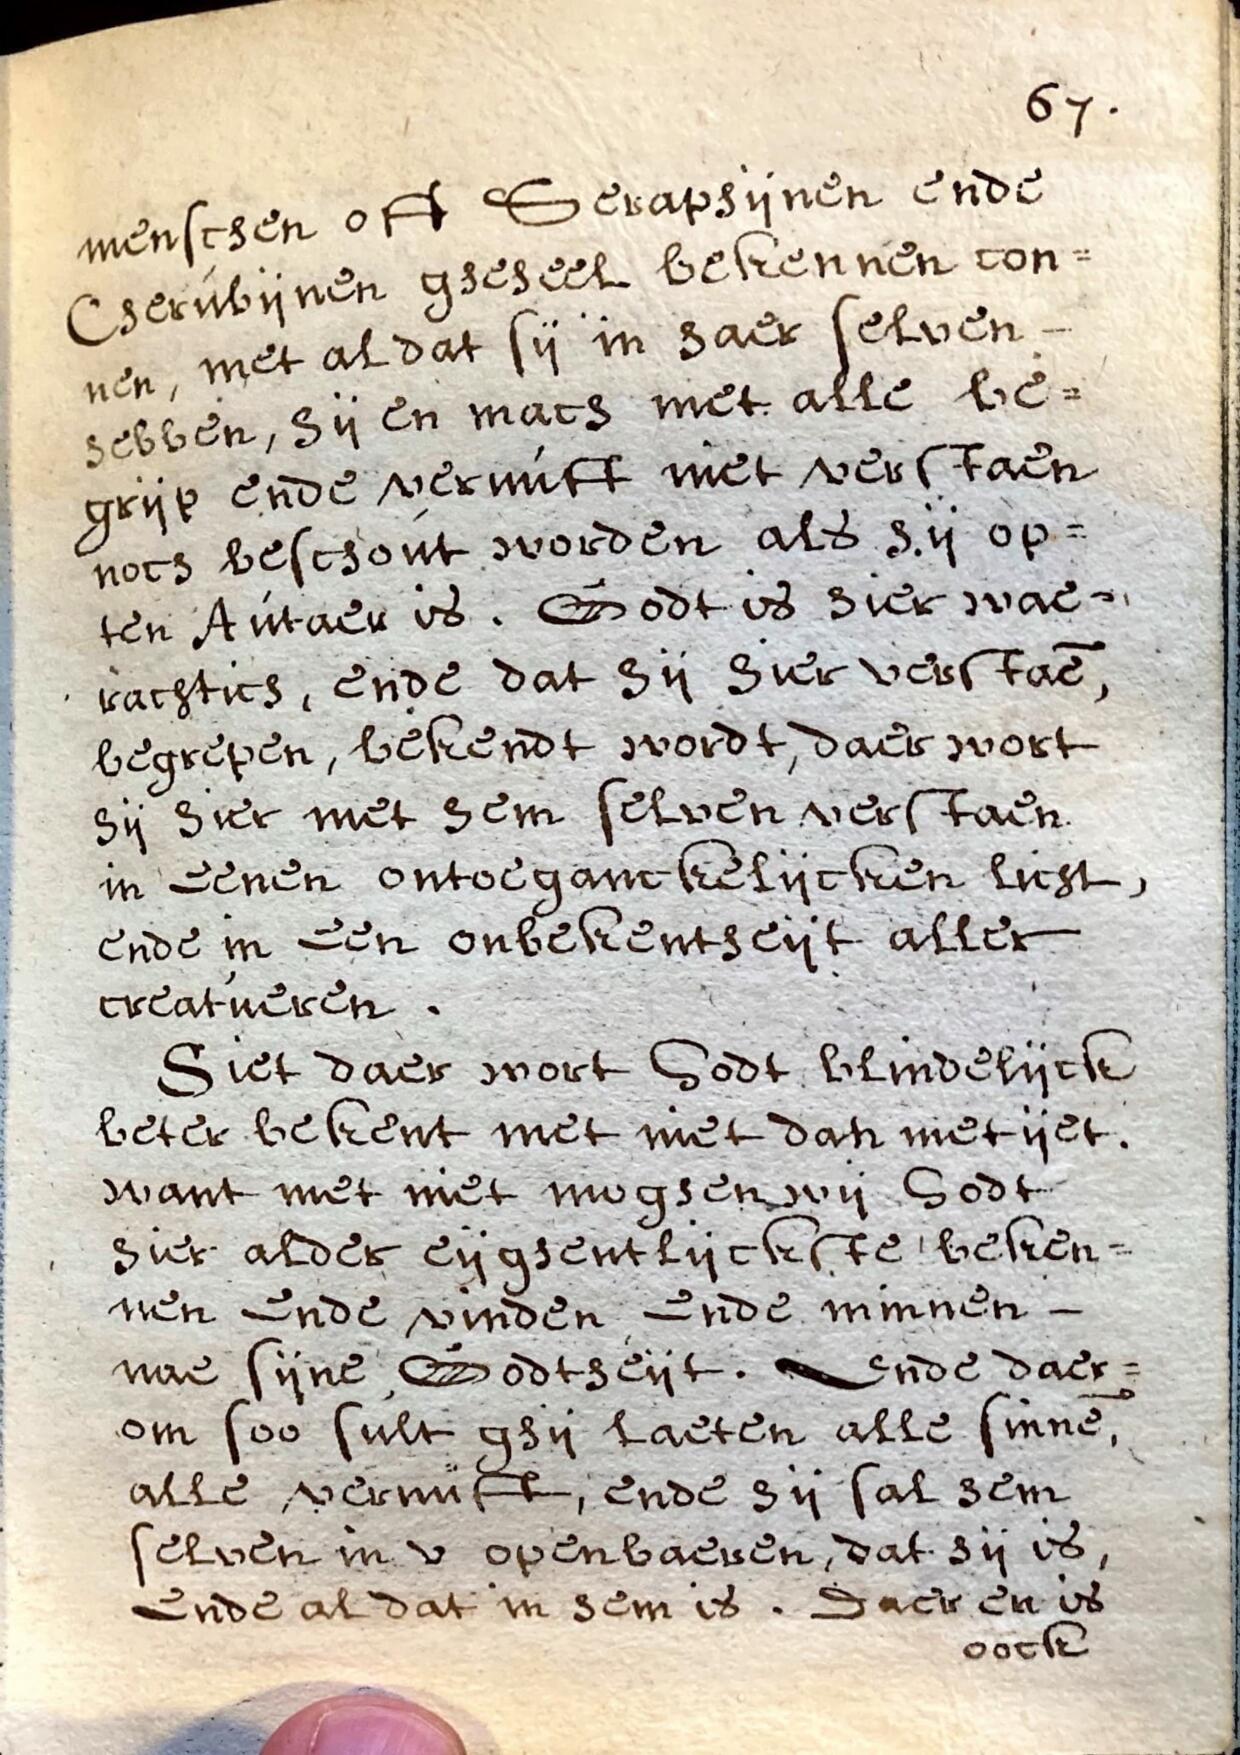 67.
menschen oft Seraphijnen ende
Cherúbijnen gheheel bekennen con=
nen, met al dat sij in haer selven –
hebben, hij en mach met alle be=
grijp ende vernúft niet verstaen
noch beschoút worden als hij op=
ten Aútaer is. Godt is hier wae=
rachtich, ende dat hij hier verstaē,
begrepen, bekendt wordt, daer wort
hij hier met hem selven verstaen
in eenen ontoeganckelijcken licht,
ende in een onbekentheijt aller
creatúeren.
Siet daer wort Godt blindelijck
beter bekent met niet dan met ijet.
want met niet moghen wij Godt
hier alder eijghentlijckste beken=
nen ende vinden ende minnen –
nae sijne Godtheijt. Ende daer=
om soo súlt ghij laeten alle sinnē,
alle vernúft, ende hij sal hem
selven in v openbaeren, dat hij is,
ende al dat in hem is. Daer en is
oock